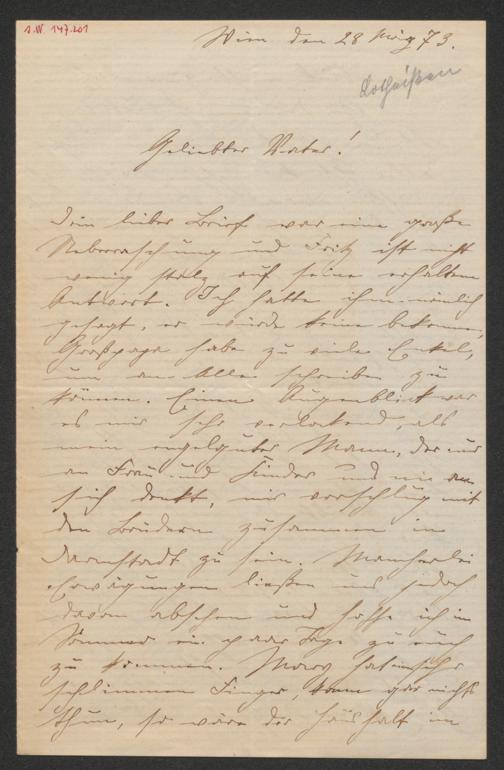 A.N. 147.201
Wien den 28 März 73.
Lotheißen
Geliebter Vater!
Dein lieber Brief war eine große
Ueberraschung und Fritz ist nicht
wenig stolz auf seine erhaltene
Antwort. Ich hatte ihm nämlich
gesagt, er würde keine bekommen,
Großpapa habe zu viele Enkel,
um an Alle schreiben zu
können. Einen Augenblick war
es mir sehr verlockend, als
mein engelguter Mann, der nur
an Frau und Kinder und nie an
sich denkt, mir vorschlug mit
den Brüdern zusammen in
Darmstadt zu sein. Mancherlei
Erwägungen ließen uns jedoch
davon absehen und hoffe ich im
Sommer ein paar Tage zu euch
zu kommen. Mary hat sehr
schlimmen Finger, kann gar nichts
thun, so wäre der Haushalt im